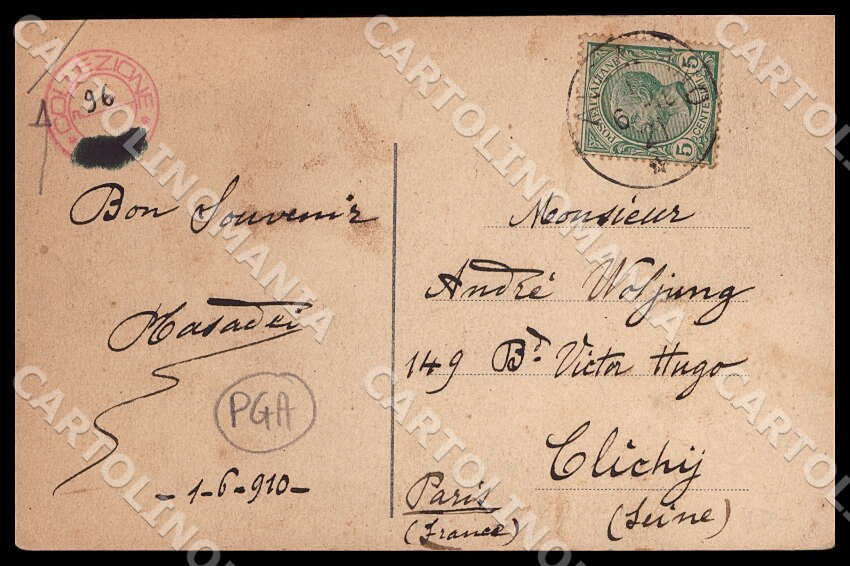 COLLEZIONE
96
Bon Souvenir
Masadei
PGA
-1-6-910-
POSTE ITALIANE
CENT. 5
5
6
21
Monsieur
André Woljung
149 Bd. Victor Hugo
Clichy
(Seine)
Paris
(France)
CARTOLINOMANIA